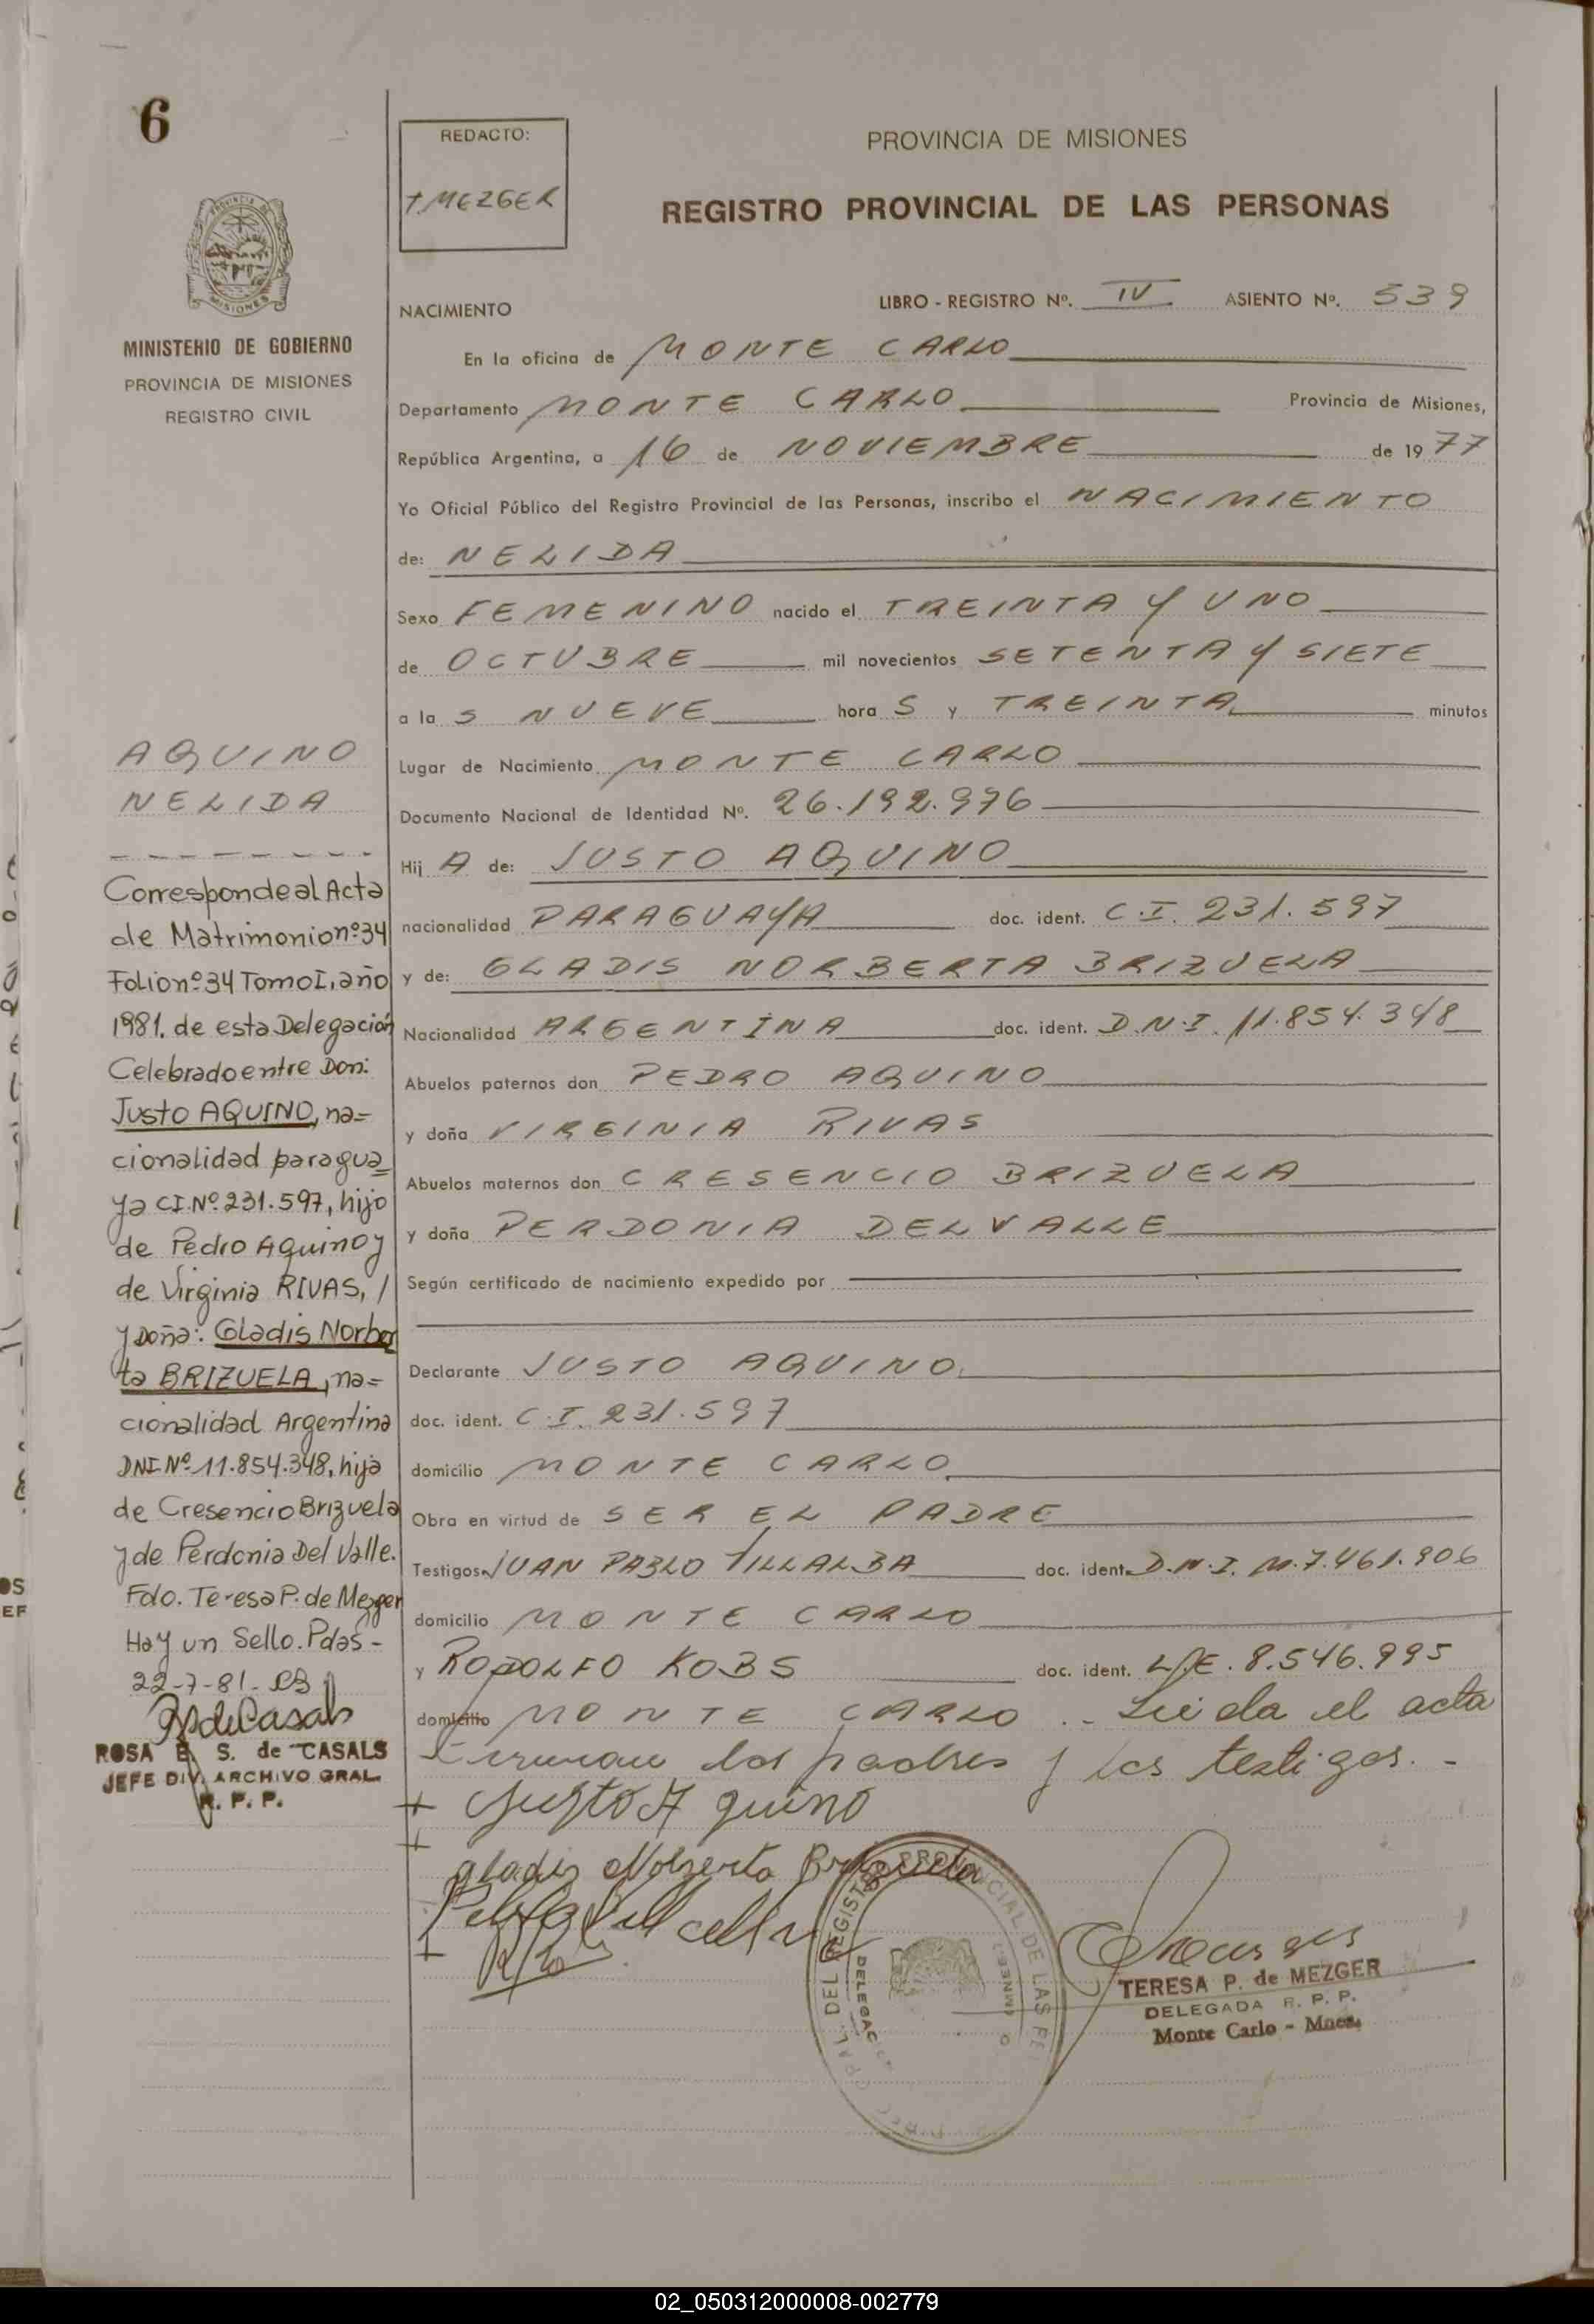 6
REDACTO:
T. MEZGER
PROVINCIA DE MISIONES
REGISTRO PROVINCIAL DE LAS PERSONAS
MISIONES
MINISTERIO DE GOBIERNO
PROVINCIA DE MISIONES
REGISTRO CIVIL
NACIMIENTO LIBRO - REGISTRO Nº. IV ASIENTO Nº. 539
En la oficina de MONTE CARLO
Departamento MONTE CARLO Provincia de Misiones,
República Argentina, a 16 de NOVIEMBRE de 1977
Yo Oficial Público del Registro Provincial de las Personas, inscribo el NACIMIENTO
de: NELIDA
Sexo FEMENINO nacido el TREINTA Y UNO
de OCTUBRE mil novecientos SETENTA Y SIETE
a la S NUEVE hora S y TREINTA minutos
Lugar de Nacimiento MONTE CARLO
Documento Nacional de Identidad Nº. 26.192.976
Hij A de: JUSTO AQUINO
nacionalidad PARAGUAYA doc. ident. C.I. 231.597
y de: GLADIS NORBERTA BRIZUELA
Nacionalidad ARGENTINA doc. ident. D.N.I. 11.854.348
Abuelos paternos don PEDRO AQUINO
y doña VIRGINIA RIVAS
Abuelos maternos don CRESENCIO BRIZUELA
y doña PERDONIA DEL VALLE
Según certificado de nacimiento expedido por
Declarante JUSTO AQUINO
doc. ident. C.I. 231.597
domicilio MONTE CARLO
Obra en virtud de SER EL PADRE
Testigos JUAN PABLO VILLALBA doc. ident. D.N.I. M.7.461.906
domicilio MONTE CARLO
y RODOLFO KOBS doc. ident. L.E. 8.546.995
domicilio MONTE CARLO .- Leida el acta
firman los padres y los testigos.-
+ Justo Aquino
+ gladis Norberta Brizuela
AQUINO
NELIDA
Corresponde al Acta
de Matrimonio nº 34
Folio nº 34 Tomo I, año
1981. de esta Delegación
Celebrado entre Don:
Justo AQUINO, na=
cionalidad paragua_
ya CI.Nº 231.597, hijo
de Pedro Aquino y
de Virginia RIVAS, /
y Doña: Gladis Norber
ta BRIZUELA, na=
cionalidad Argentina
DNI Nº 11.854.348, hija
de Cresencio Brizuela
y de Perdonia Del Valle.
Fdo. Teresa P. de Mezger
Hay un Sello. Pdas-
22-7-81.
ROSA E. S. de CASALS
JEFE DIV. ARCHIVO GRAL.
R. P. P.
TERESA P. de MEZGER
DELEGADA R. P. P.
Monte Carlo - Mnes.
02_050312000008-002779